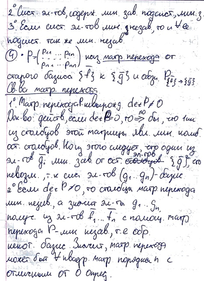 2° Сист. эл-тов, содерж. лин. зав. подсист., лин. з.
3° Если сист. эл-тов лин. незав., то и ∀ее
подсист. так же лин. незав.
P = (p₁₁ ... p₁ₙ ... pₙ₁ ... pₙₙ) наз. матр. перехода от
старого базиса {f} к {g} и обозн. P{f}→{g}
Св-во матр. перехода
1° Матр. перехода P невырожд. det P≠0
Док-во: действ., если det P=0, то
из столбцов этой матрицы явл. лин. комб.
ост. столбцов. Но из этого следует, что один из
эл-тов gᵢ лин. зав. от ост. эл-тов {g}, что
невозм., т.к. сист. эл-тов (g₁...gₙ) - базис
2° Если det P≠0, то столбцы матр. перехода
лин. незав., а значит эл-ты g₁...gₙ
получ. из эл-тов f₁...fₙ с помощ. матр.
перехода P - лин. незав., т.е. обр.
базис. Значит, матр. перехода
может быть ∀ квадр. матр. порядка n с
отличным от 0 опред.